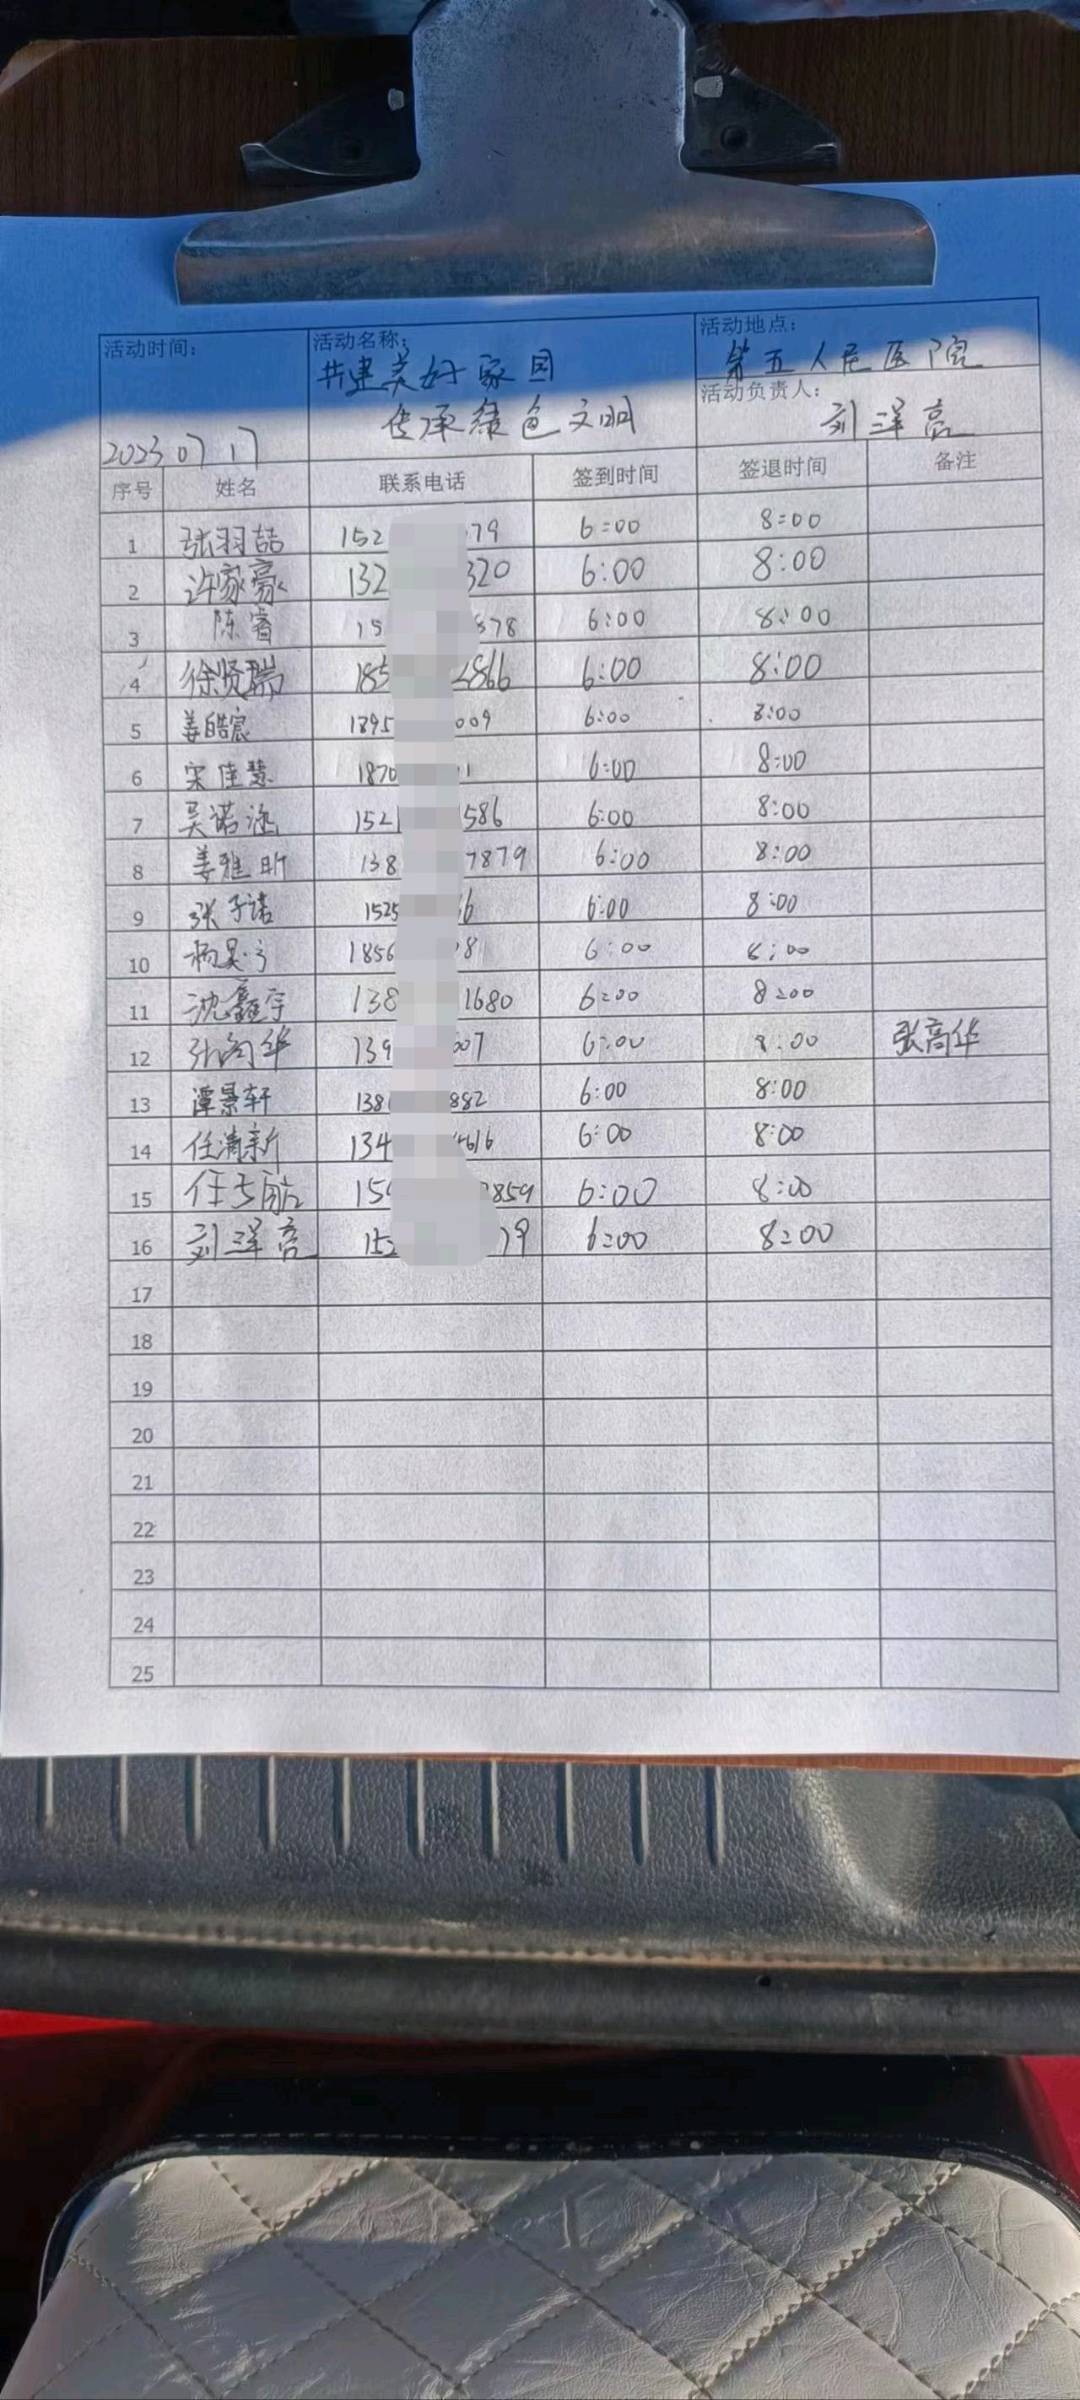 活动时间： 活动名称： 活动地点：
共建美好家园 第五人民医院
活动负责人：
传承绿色文明 刘泽亮
2023 07 17
序号 姓名 联系电话 签到时间 签退时间 备注
1 张羽喆 152 79 6:00 8:00
2 许家豪 132 320 6:00 8:00
3 陈睿 15 878 6:00 8:00
4 徐贤瑞 185 2866 6:00 8:00
5 姜皓宸 1895 009 6:00 8:00
6 宋佳慧 1870 11 6:00 8:00
7 吴诺涵 152 586 6:00 8:00
8 姜雅昕 138 7879 6:00 8:00
9 张子诺 1525 6 6:00 8:00
10 杨昊宁 1856 8 6:00 8:00
11 沈鑫宇 138 1680 6:00 8:00
12 张高华 139 007 6:00 8:00 张高华
13 谭景轩 138 882 6:00 8:00
14 任清新 134 4616 6:00 8:00
15 任 159 859 6:00 8:00
16 刘泽亮 152 79 6:00 8:00
17
18
19
20
21
22
23
24
25